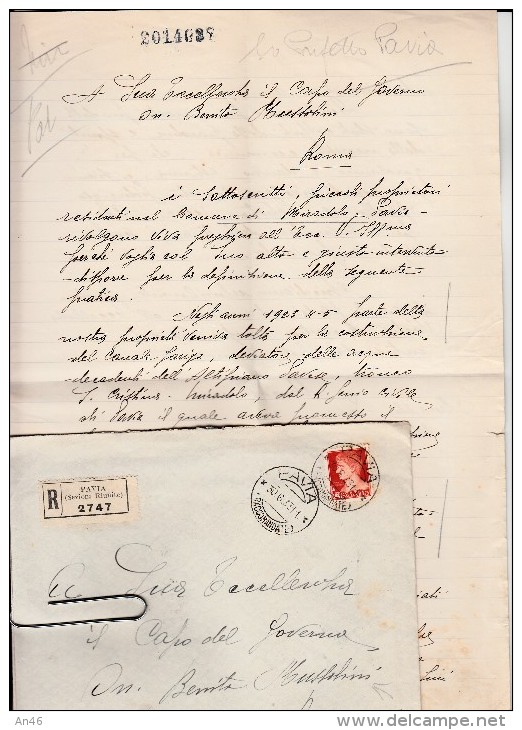 2014687
Sr Prefetto Pavia
A Sua Eccellenza il Capo del Governo
On. Benito Mussolini
Roma
i sottoscritti, piccoli proprietari
residenti nel Comune di Miradolo, Pavia
rivolgono viva preghiera all'Ecc. V. Affinis
perché voglia col Suo alto e giusto interessa
disporre per la definizione della seguente
pratica.
Negli anni 1923-4-5 parte della
nostra proprietà veniva tolta per la costruzione,
del Canale deviatore delle acque
decadenti dell'Altipiano Pavese, tronco
S. Cristina - Miradolo, dal R. Genio Civile
di Pavia il quale aveva promesso il
R
PAVIA
(Sezione Riunite)
2747
PAVIA
(RACCOMANDATE)
A Sua Eccellenza
il Capo del Governo
On. Benito Mussolini
An46
www.delcampe.net